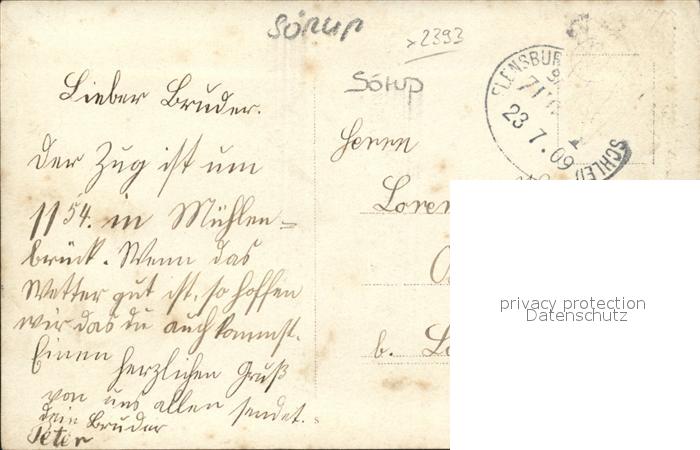 Sörup
x2393
Sörup
FLENSBURG
23.7.09
SCHLES
Lieber Bruder.
Der Zug ist um
11 54. in Mühlen=
brück. Wenn das
Wetter gut ist, so hoffen
wir das du auch kommst.
Einen herzlichen Gruß
von uns allen sendet.
dein Bruder
Peter
Herrn
Loren
b. L
privacy protection
Datenschutz